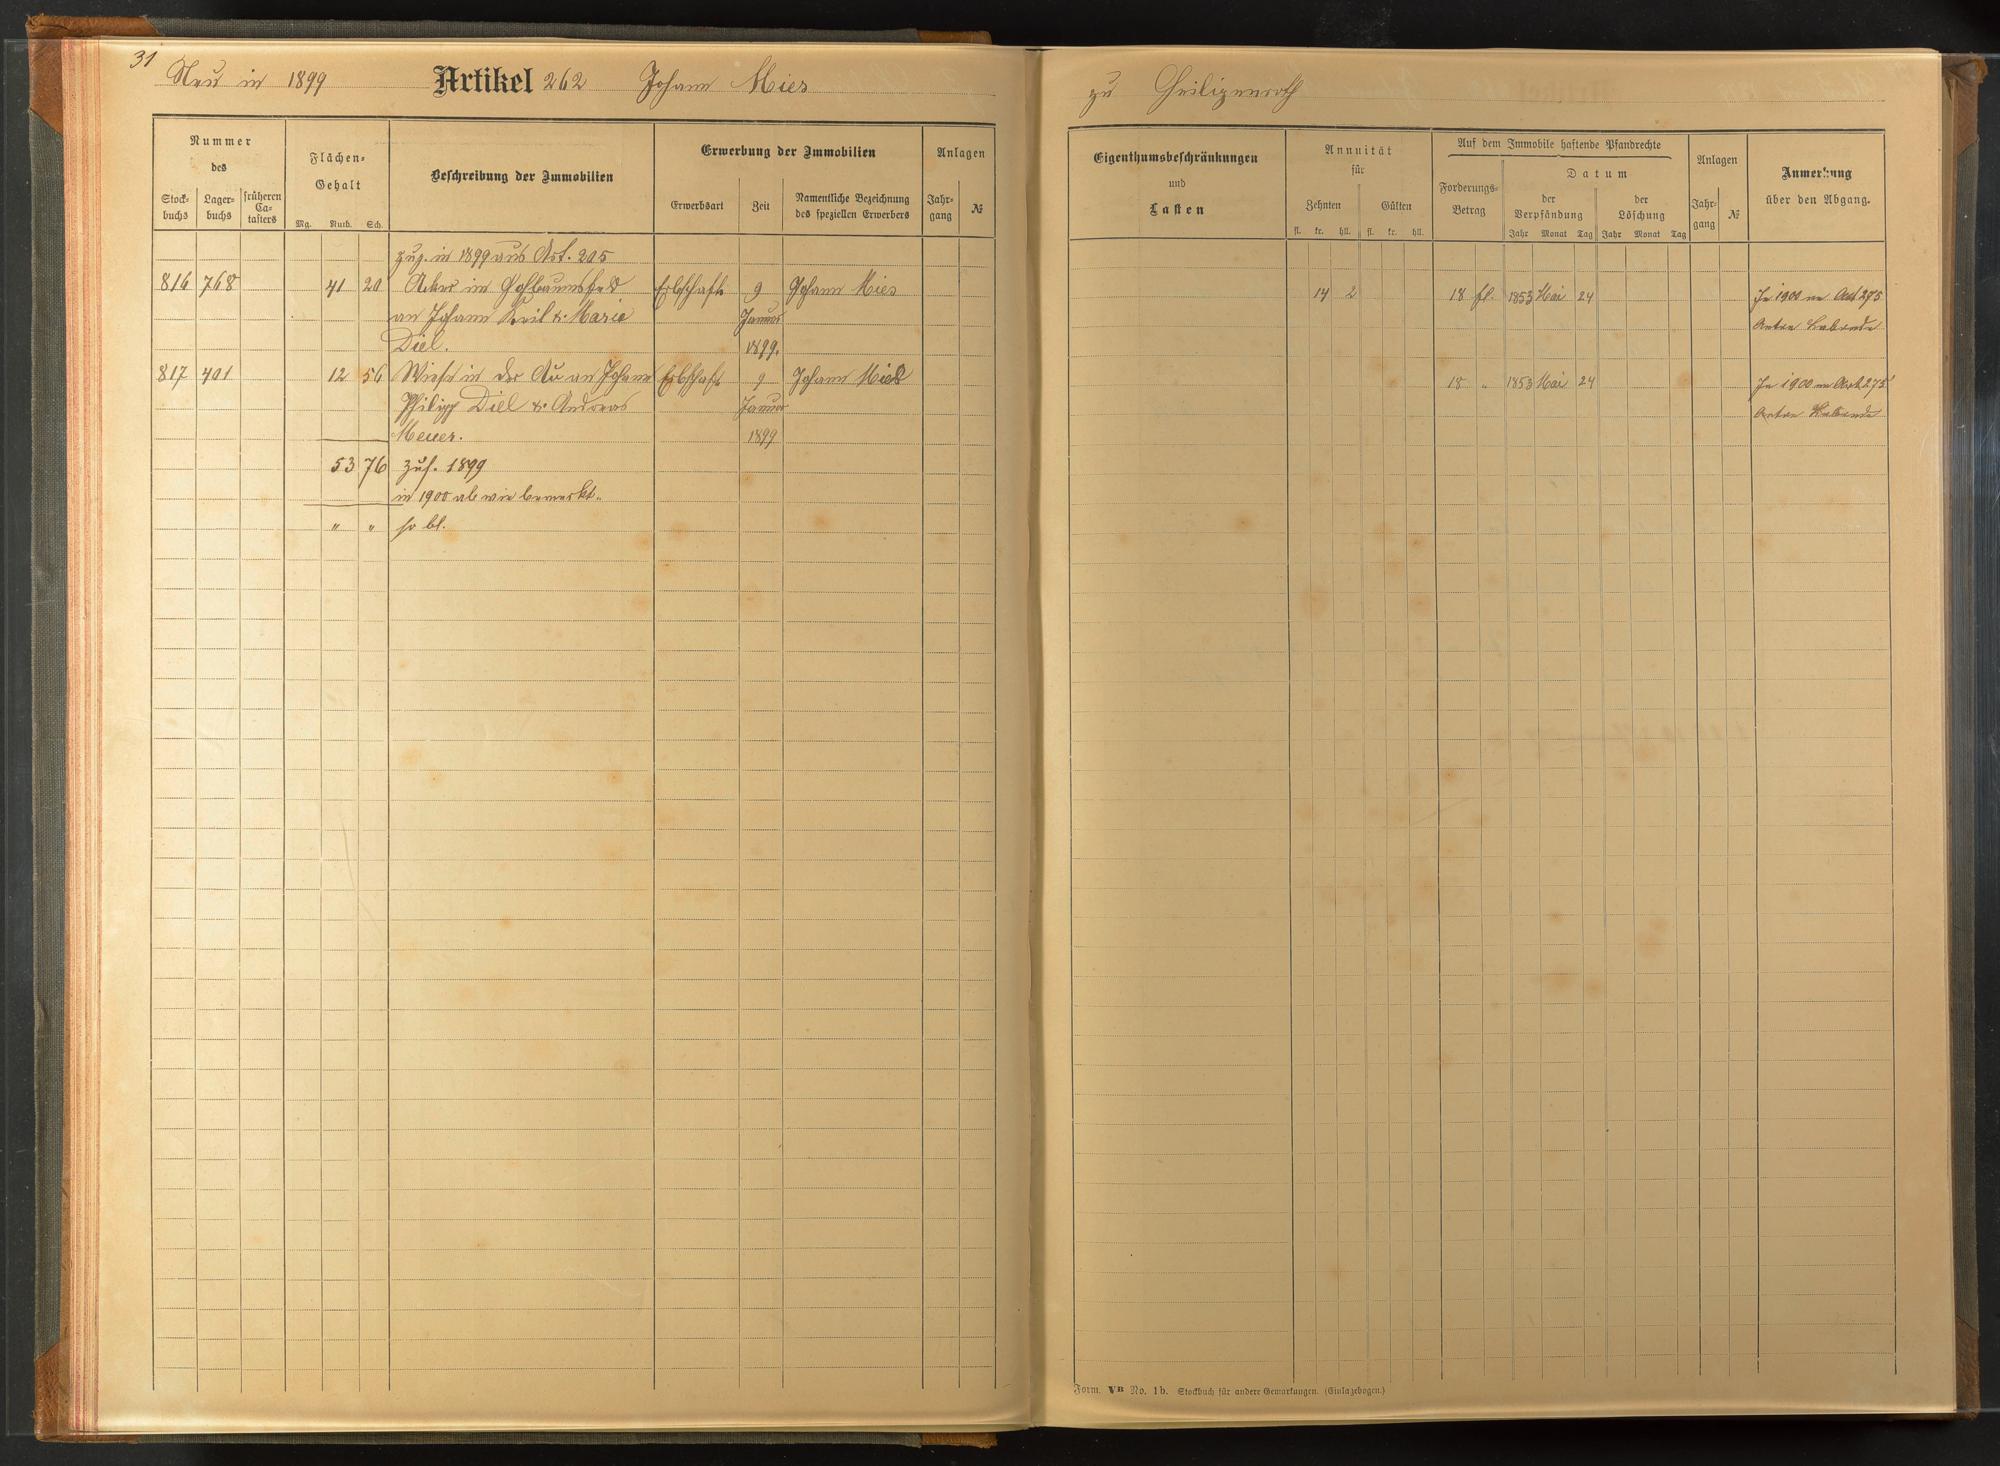 31
Neu in 1899 Artikel 262 Johann Mies
zu Heiligenroth
Nummer
des
Stock-
buchs
Lager-
buchs
früheren
Ca-
tasters
Flächen-
Gehalt
Mg. Ruth. Sch.
Beschreibung der Immobilien
Erwerbung der Immobilien
Erwerbsart
Zeit
Namentliche Bezeichnung
des speziellen Erwerbers
Anlagen
Jahr-
gang
№
zug. in 1899 aus Art. 205
816 768 41 20 Acker im
an Johann Keil & Marie
Diel.
Erbschaft 9 Johann Mies
Januar
1899.
817 401 12 56 Wiese in der Au an Johann
Philipp Diel & Andreas
Meuer.
Erbschaft 9 Johann Mies
Januar
1899
53 76 zus. 1899
in 1900 ab wie bemerkt.
" " so bl.
Eigenthumsbeschränkungen
und
Lasten
Annuität
für
Zehnten
Gülten
fl. kr. hll. fl. kr. hll.
Auf dem Immobile haftende Pfandrechte
Forderungs-
Betrag
Datum
der
Verpfändung
der
Löschung
Jahr Monat Tag Jahr Monat Tag
Anlagen
Jahr-
gang
№
Anmerkung
über den Abgang.
14 2 18 fl. 1853 Mai 24 In 1900 an Art 275
18 " 1853 Mai 24 In 1900 an Art 275
Form. VB No. 1b. Stockbuch für andere Gemarkungen. (Einlagebogen.)